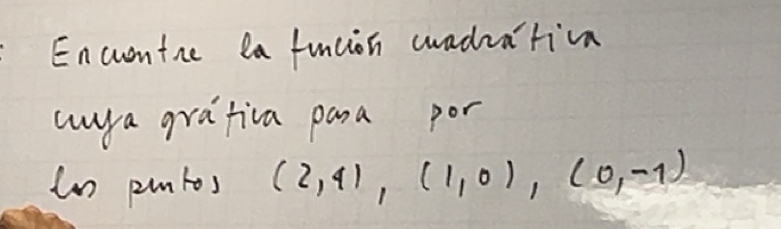 Encuentre la función cuadrática
cuya gráfica pasa por
los puntos (2,4), (1,0), (0,-1)